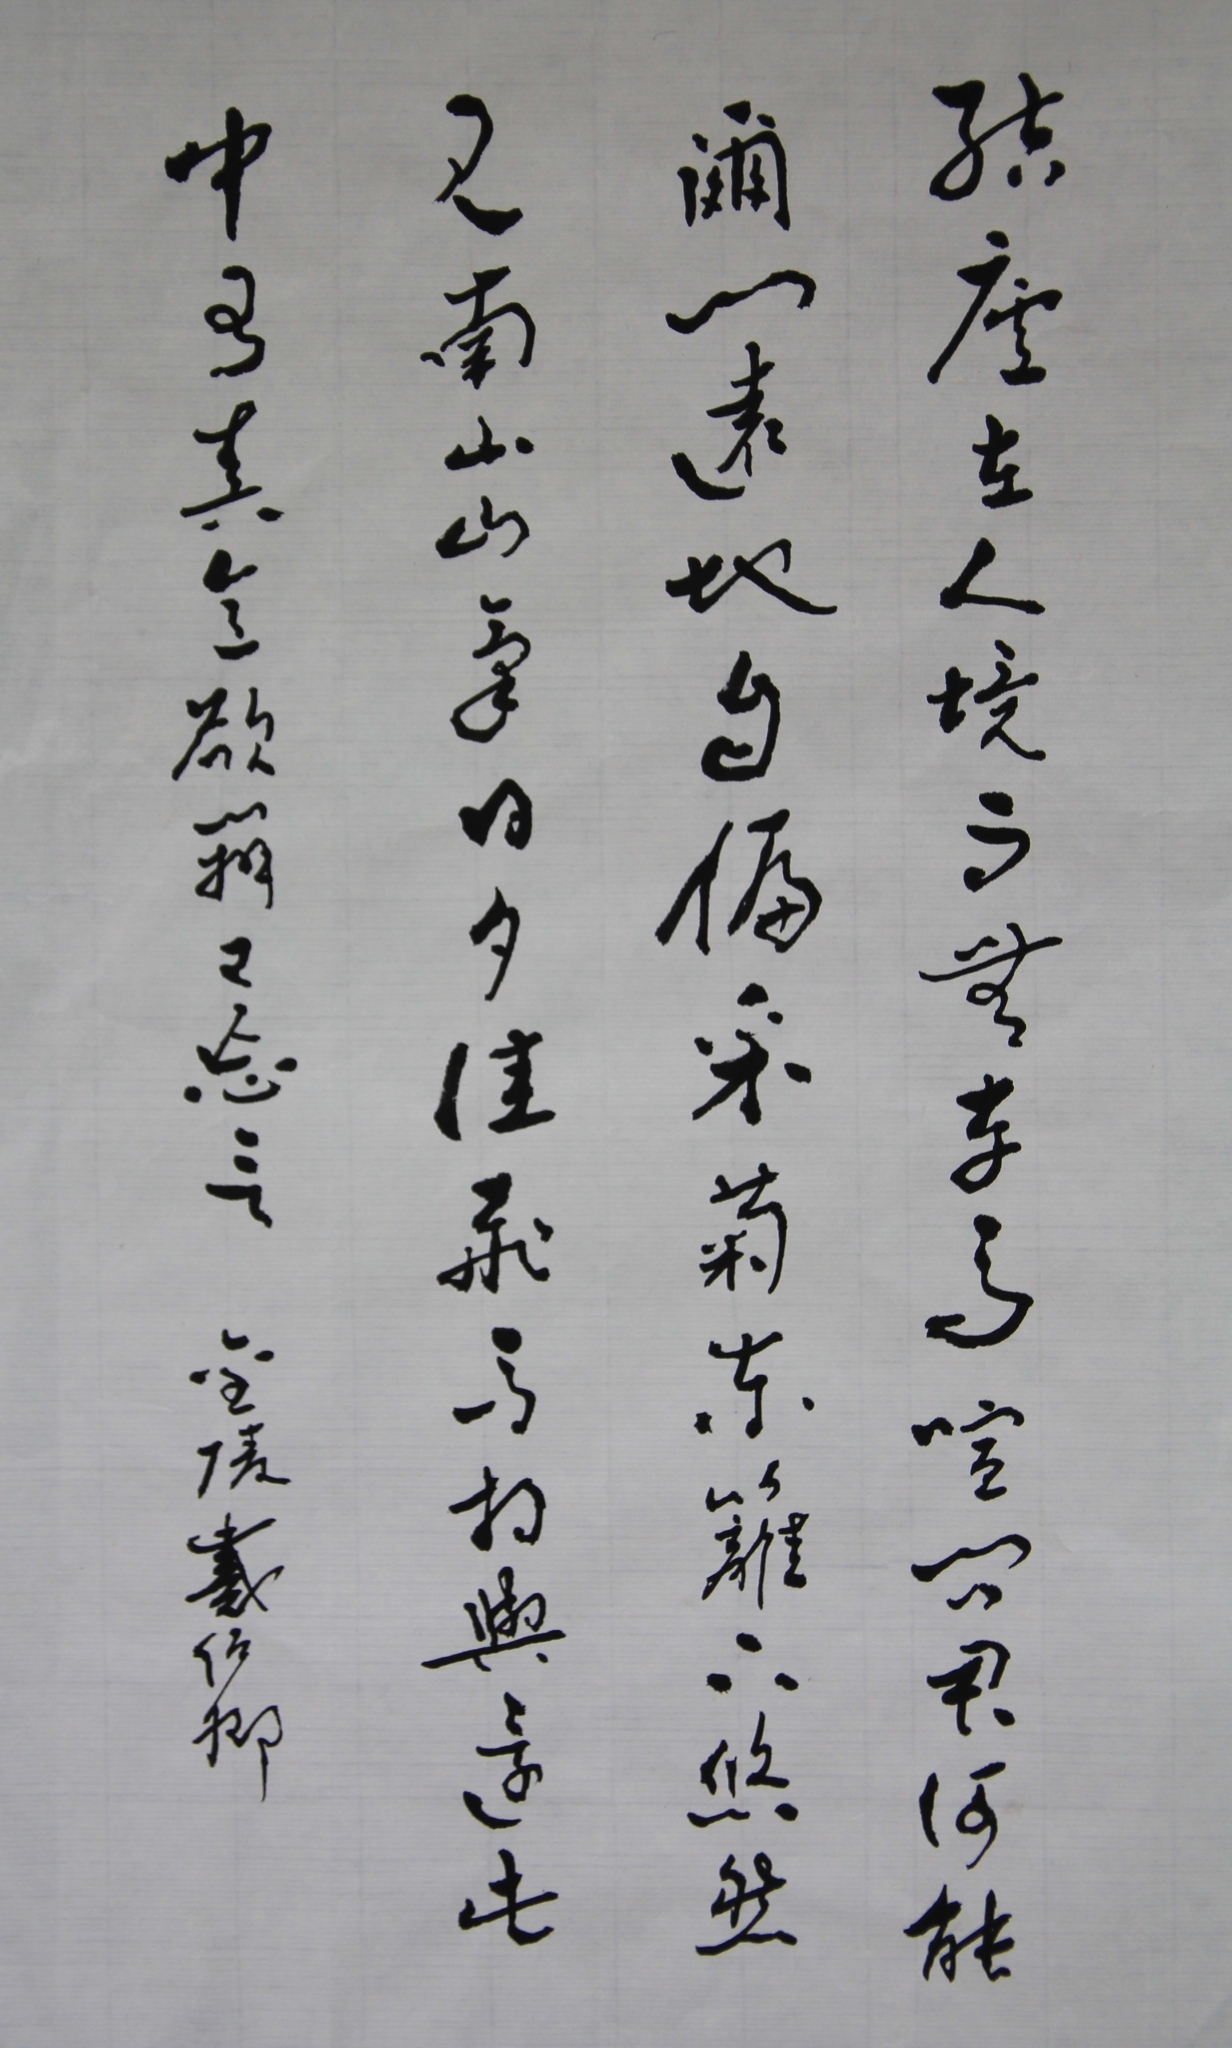 結廬在人境而無車馬喧問君何能
爾心遠地自偏采菊東籬下悠然
見南山山氣日夕佳飛鳥相與還此
中有真意欲辨已忘言 金陵戴